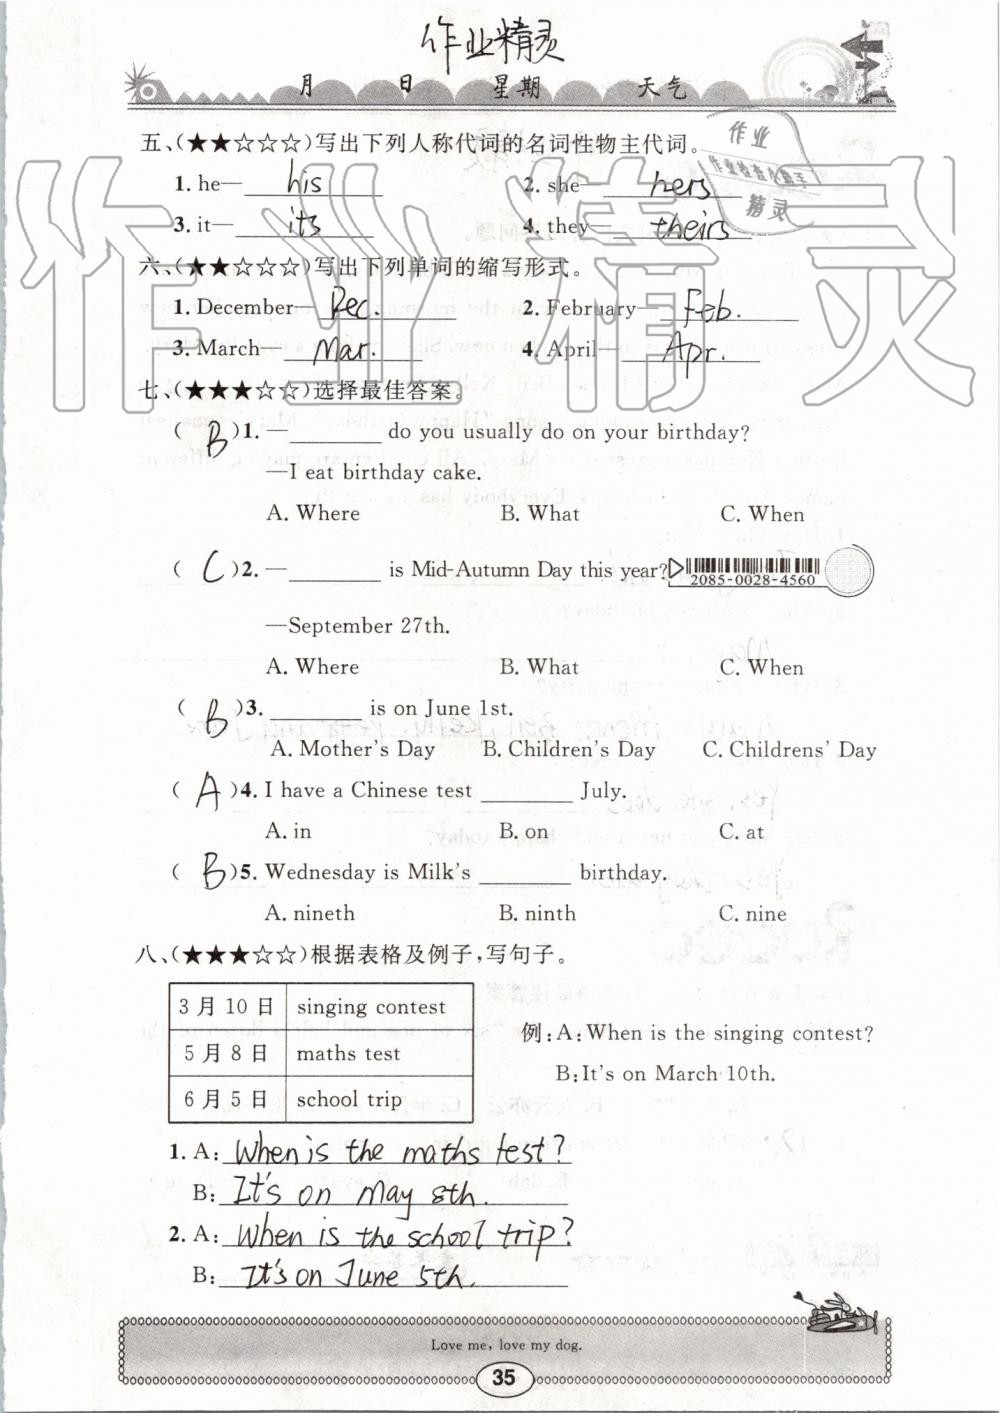 作业精灵
月 日 星期 天气
五、(★★☆☆☆)写出下列人称代词的名词性物主代词。
1. he— his 2. she— hers
3. it— its 4. they— theirs
六、(★★☆☆☆)写出下列单词的缩写形式。
1. December— Dec. 2. February— Feb.
3. March— Mar. 4. April— Apr.
七、(★★★☆☆)选择最佳答案。
( B )1. —________ do you usually do on your birthday?
—I eat birthday cake.
A. Where B. What C. When
( C )2. —________ is Mid-Autumn Day this year?
2085-0028-4560
—September 27th.
A. Where B. What C. When
( B )3. ________ is on June 1st.
A. Mother's Day B. Children's Day C. Childrens' Day
( A )4. I have a Chinese test ________ July.
A. in B. on C. at
( B )5. Wednesday is Milk's ________ birthday.
A. nineth B. ninth C. nine
八、(★★★☆☆)根据表格及例子,写句子。
3月10日 singing contest
5月8日 maths test
6月5日 school trip
例:A:When is the singing contest?
B:It's on March 10th.
1. A: When is the maths test?
B: It's on May 8th.
2. A: When is the school trip?
B: It's on June 5th.
Love me, love my dog.
35
作业精灵
作业
作业检查小助手
精灵